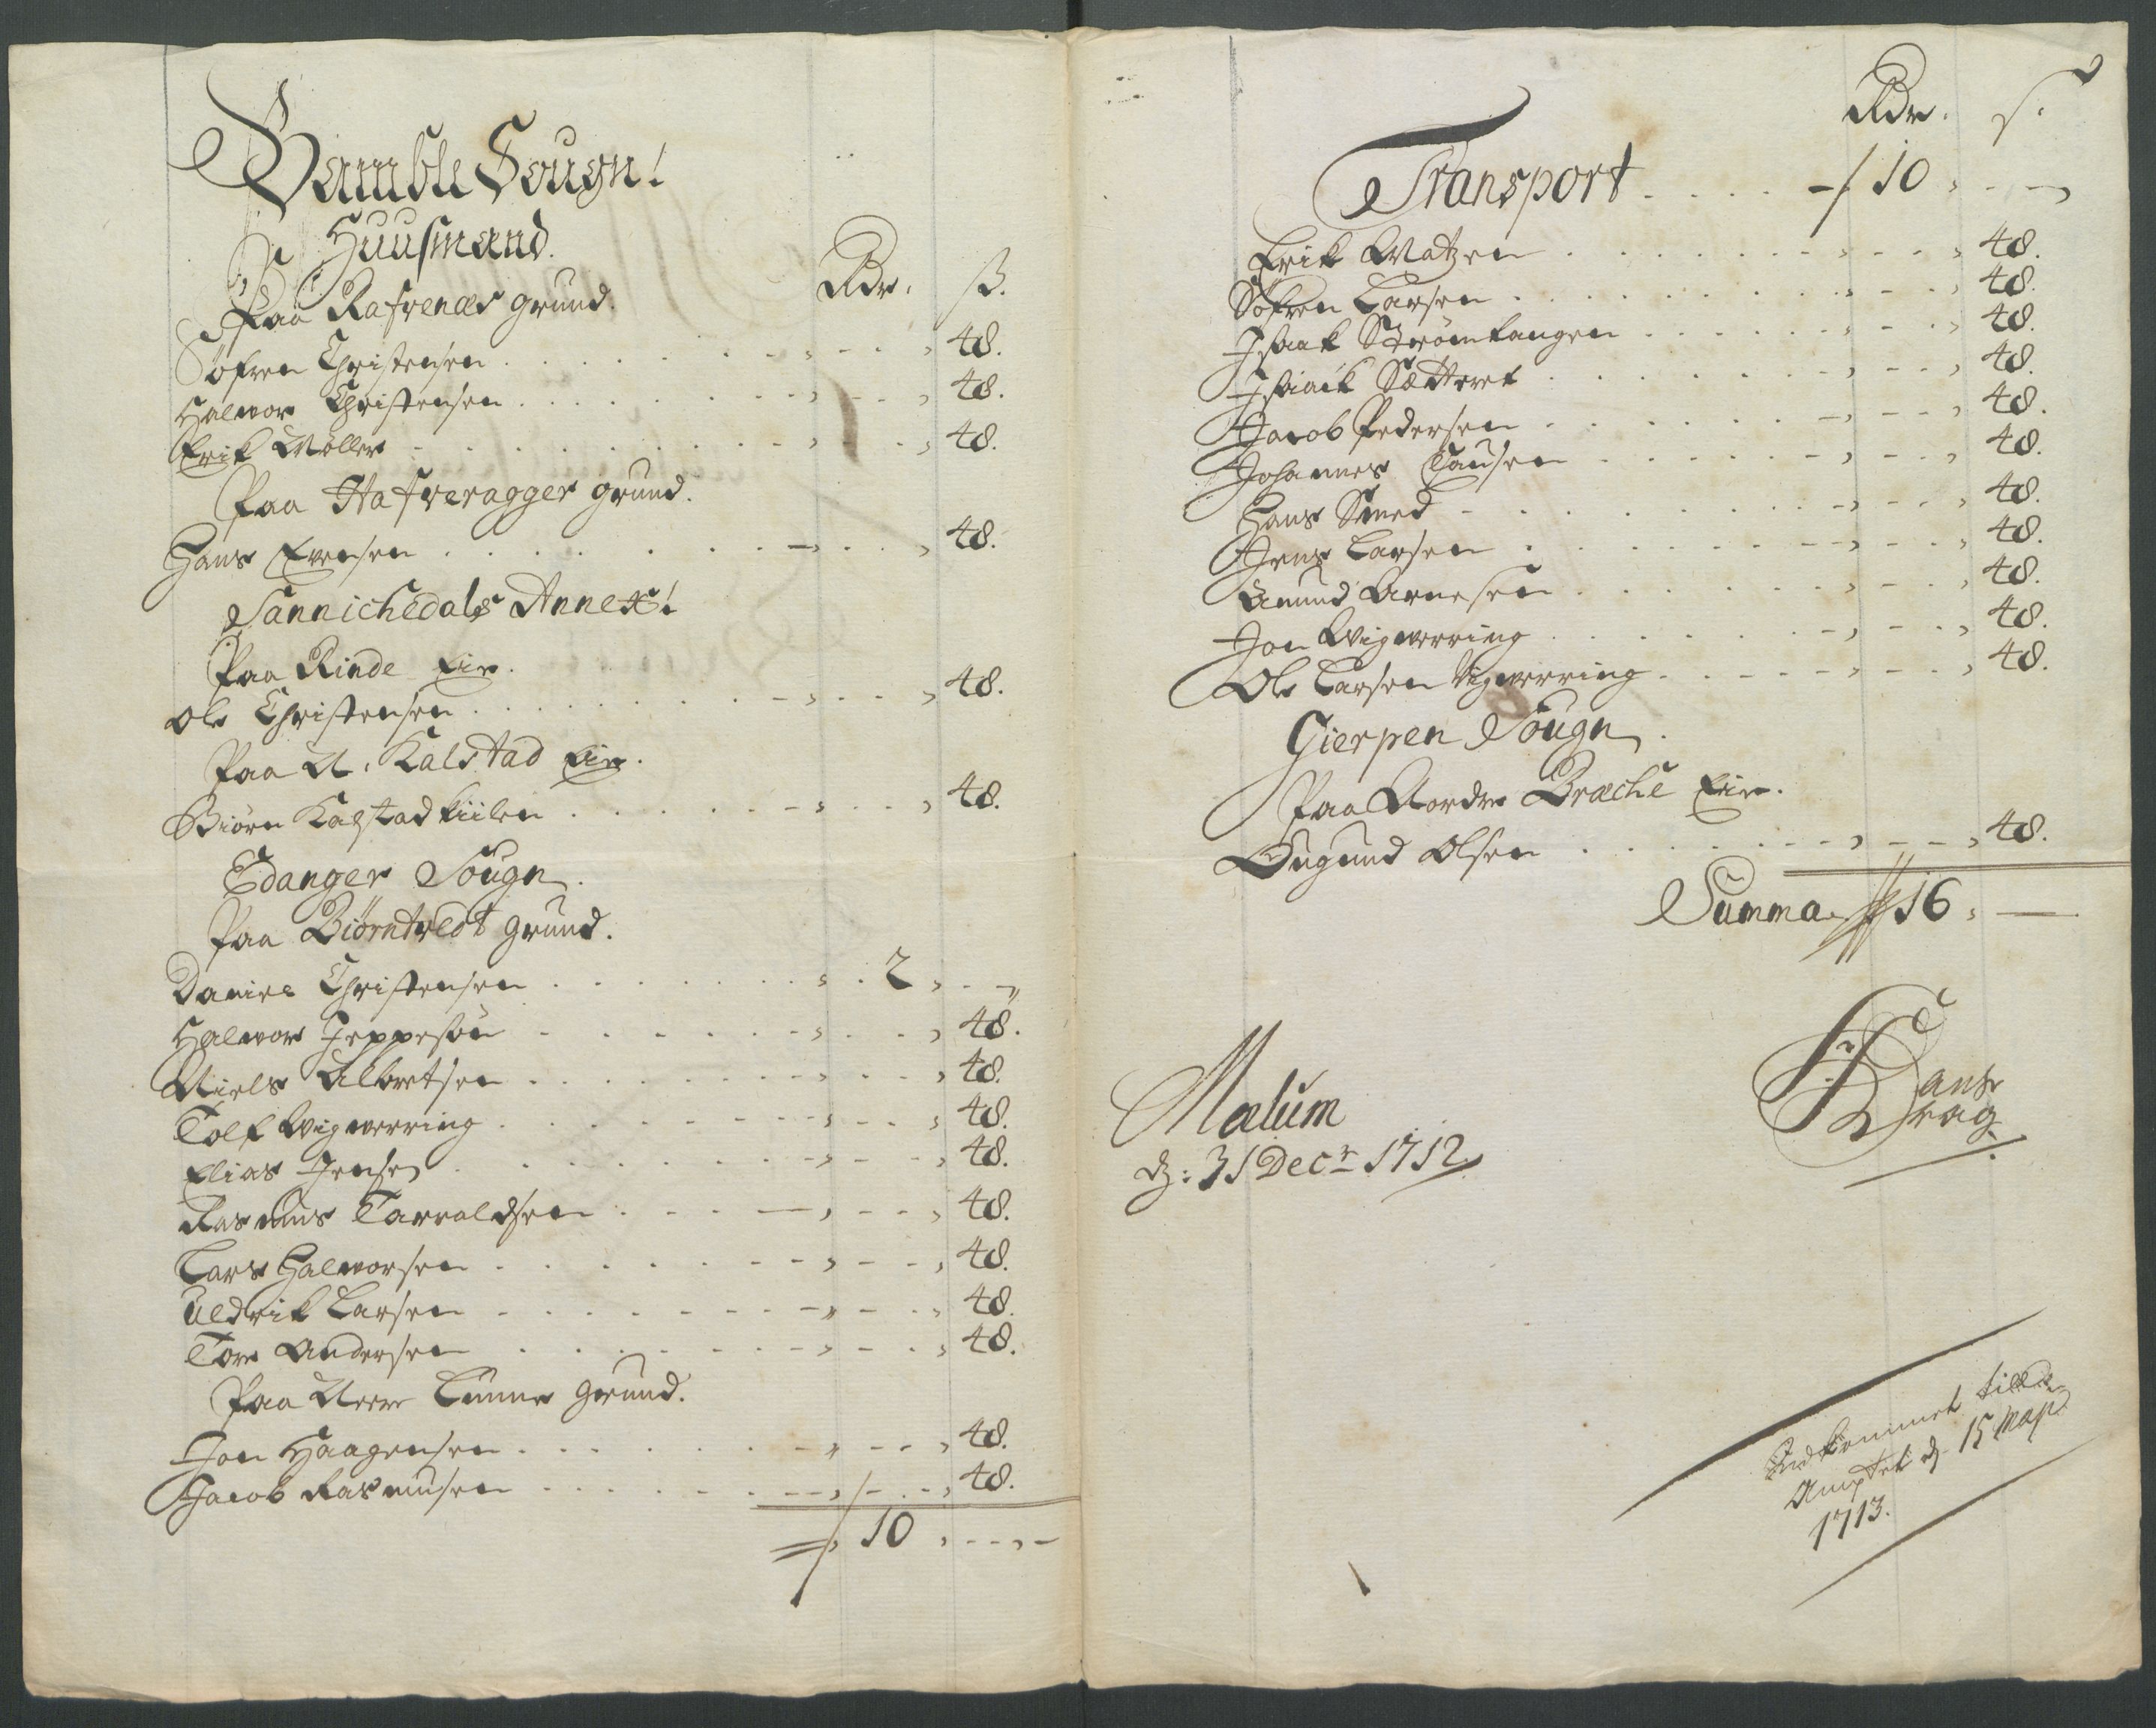 Bamble Sougn!
Huusmænd.
Rdr. ß.
Paa Rafrenæs grund.
Søfren Christensen . . . 48.
Halwor Christensen . . . 48.
Erik Møller . . . 48.
Paa Hafreragger grund.
Hans Evensen . . . 48.
Sannichedals Annex!
Paa Rinde Eie.
Ole Christensen . . . 48.
Paa N. Kalstad Eie.
Biørn Kalstadkiilen . . . 48.
Edanger Sougn.
Paa Biørntvedt grund.
Daniel Christensen . . . 2 . . .
Halwor Jeppesøn . . . 48.
Niels Albretsen . . . 48.
Tolf Wigwerring . . . 48.
Elias Jensen . . . 48.
Rasmus Tarraldsen . . . 48.
Lars Halworsen . . . 48.
Uldrik Larsen . . . 48.
Tore Andersen . . . 48.
Paa Nerre Lunne grund.
Jon Haagensen . . . 48.
Jacob Rasmusen . . . 48.
10 . . .
Rdr. s.
Transport . . . 10 . . .
Erik Matzen . . . 48.
Søfren Larsen . . . 48.
Isaak Strømtangen . . . 48.
Isaack Sætteret . . . 48.
Jacob Pedersen . . . 48.
Johannes Clausen . . . 48.
Hans Smed . . . 48.
Jens Larsen . . . 48.
Amund Arnesen . . . 48.
Jon Wigwerring . . . 48.
Ole Larsen Vigwerring . . . 48.
Gierpen Sougn.
Paa Nordre Bræche Eie.
Engund Olsen . . . 48.
Summa 16 —
Mælum
d: 31 Decr 1712.
Hans
Krag
Indkommet till
Amptet d 15 Maj
1713.